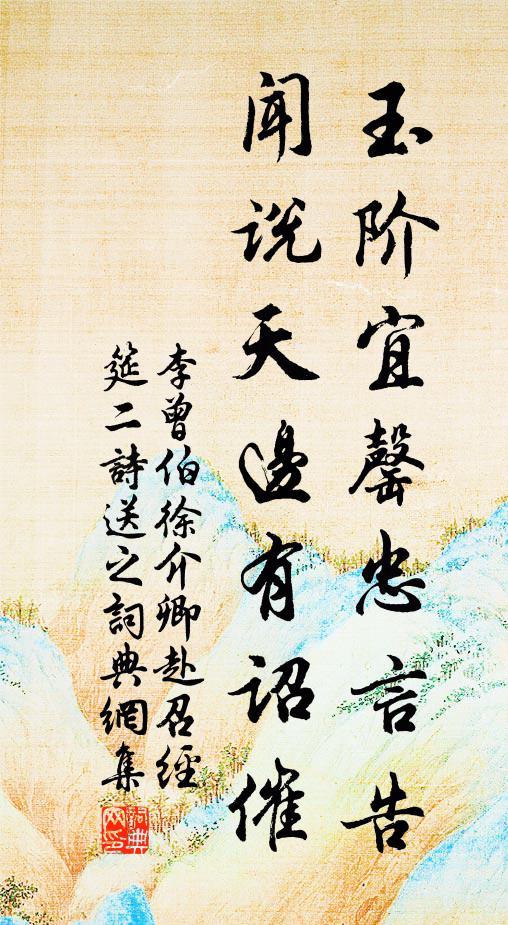 玉阶宜罄忠言告
闻说天邊有诏催
李曾伯徐介卿赴召經
筵二詩送之詞典網集
詞典网印